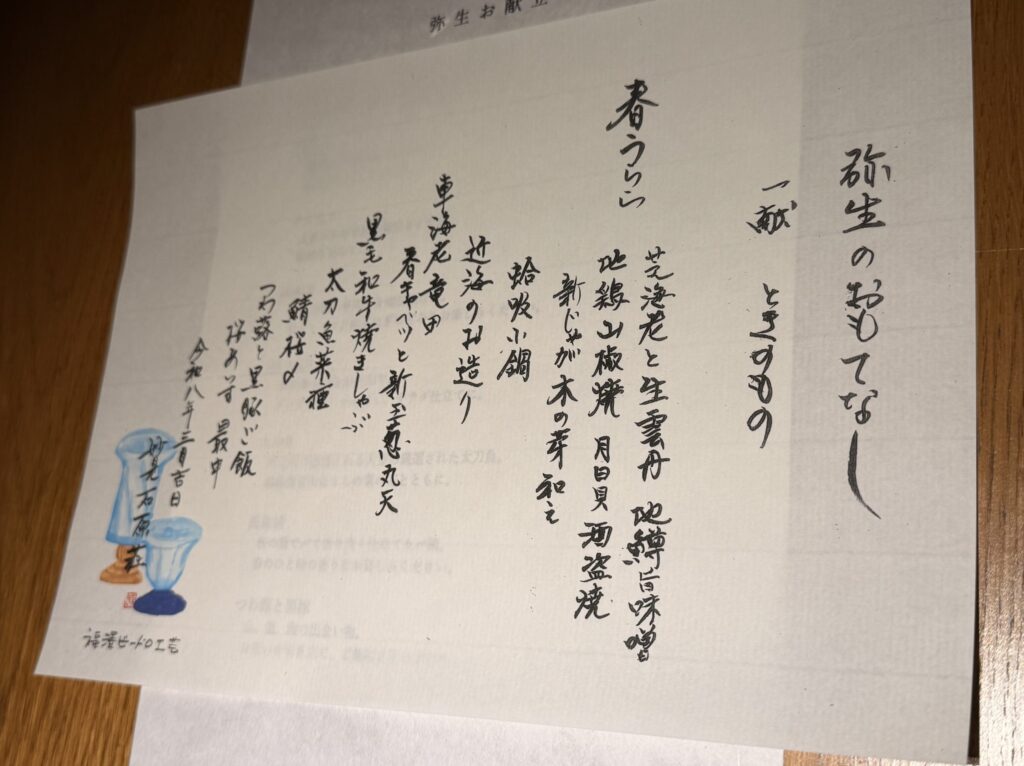 弥生お献立
弥生のおもてなし
一献 ときのもの
春うらら 芝海老と生雲丹 地鱒旨味噌
地鶏山椒焼 月日貝酒盗焼
新じゃが木の芽和え
蛤吸小鍋
近海のお造り
車海老竜田
春キャベツと新玉葱丸天
黒毛和牛焼きしゃぶ
太刀魚菜種
鯖桜〆
つわ蕗と黒豚ご飯
桜あいす 最中
令和八年三月吉日
妙見石原荘